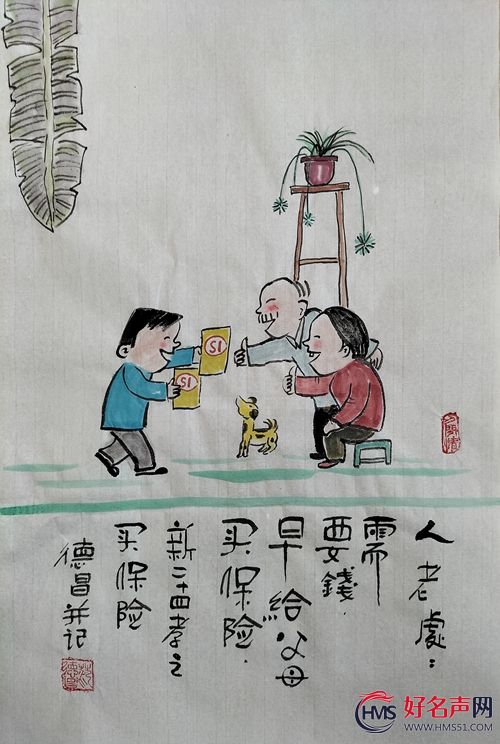 SI
SI
人老處：
需要錢．
早給父母
买保险．
新二十四孝之
买保险
德昌并记
HMS 好名声网
WWW.HMS51.COM